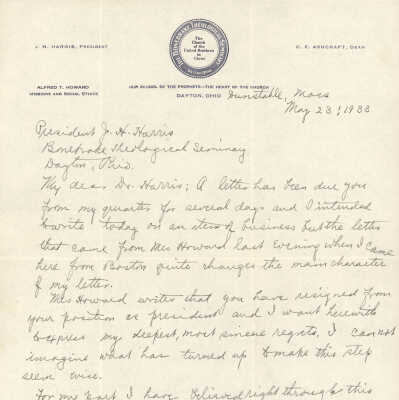 THE BONEBRAKE THEOLOGICAL SEMINARY
The Church
of the
United Brethren
in
Christ
J. H. HARRIS, PRESIDENT
G. E. ASHCRAFT, DEAN
ALFRED T. HOWARD
MISSIONS AND SOCIAL ETHICS
OUR SCHOOL OF THE PROPHETS—THE HEART OF THE CHURCH
DAYTON, OHIO
Dunstable, Mass
May 23, 1933
President J. H. Harris
Bonebrake Theological Seminary
Dayton, Ohio.
My dear Dr. Harris; A letter has been due you
from my quarter for several days and I intended
to write today on an item of business but the letter
that came from Mrs Howard last evening when I came
here from Boston quite changes the main character
of my letter.
Mrs Howard writes that you have resigned from
your position as president and I want herewith
to express my deepest, most sincere regrets. I cannot
imagine what has turned up to make this step
seem wise.
For my part I have believed right through this